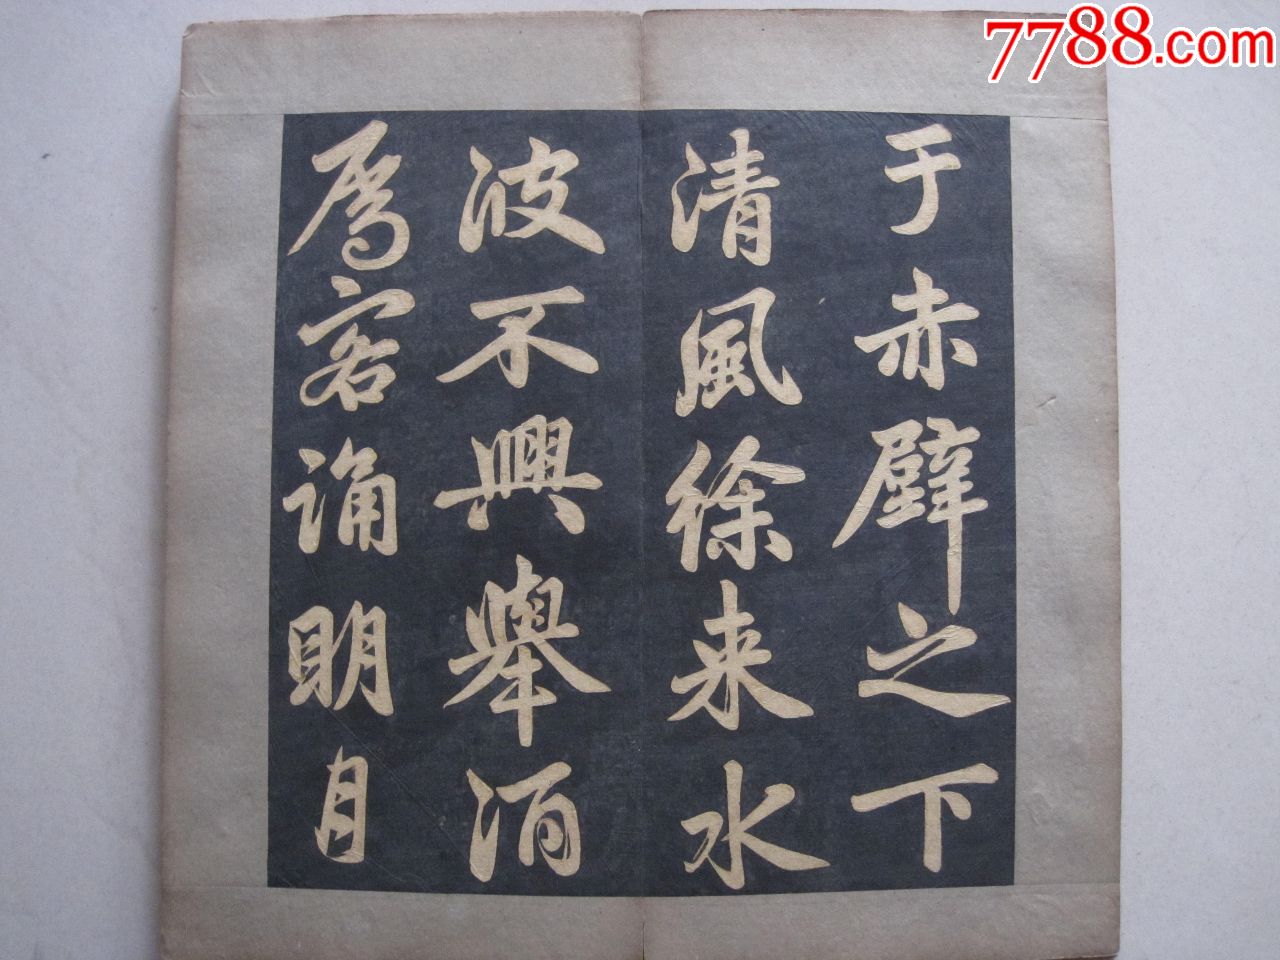 7788.com
于赤壁之下
清風徐来水
波不興舉酒
属客誦明月